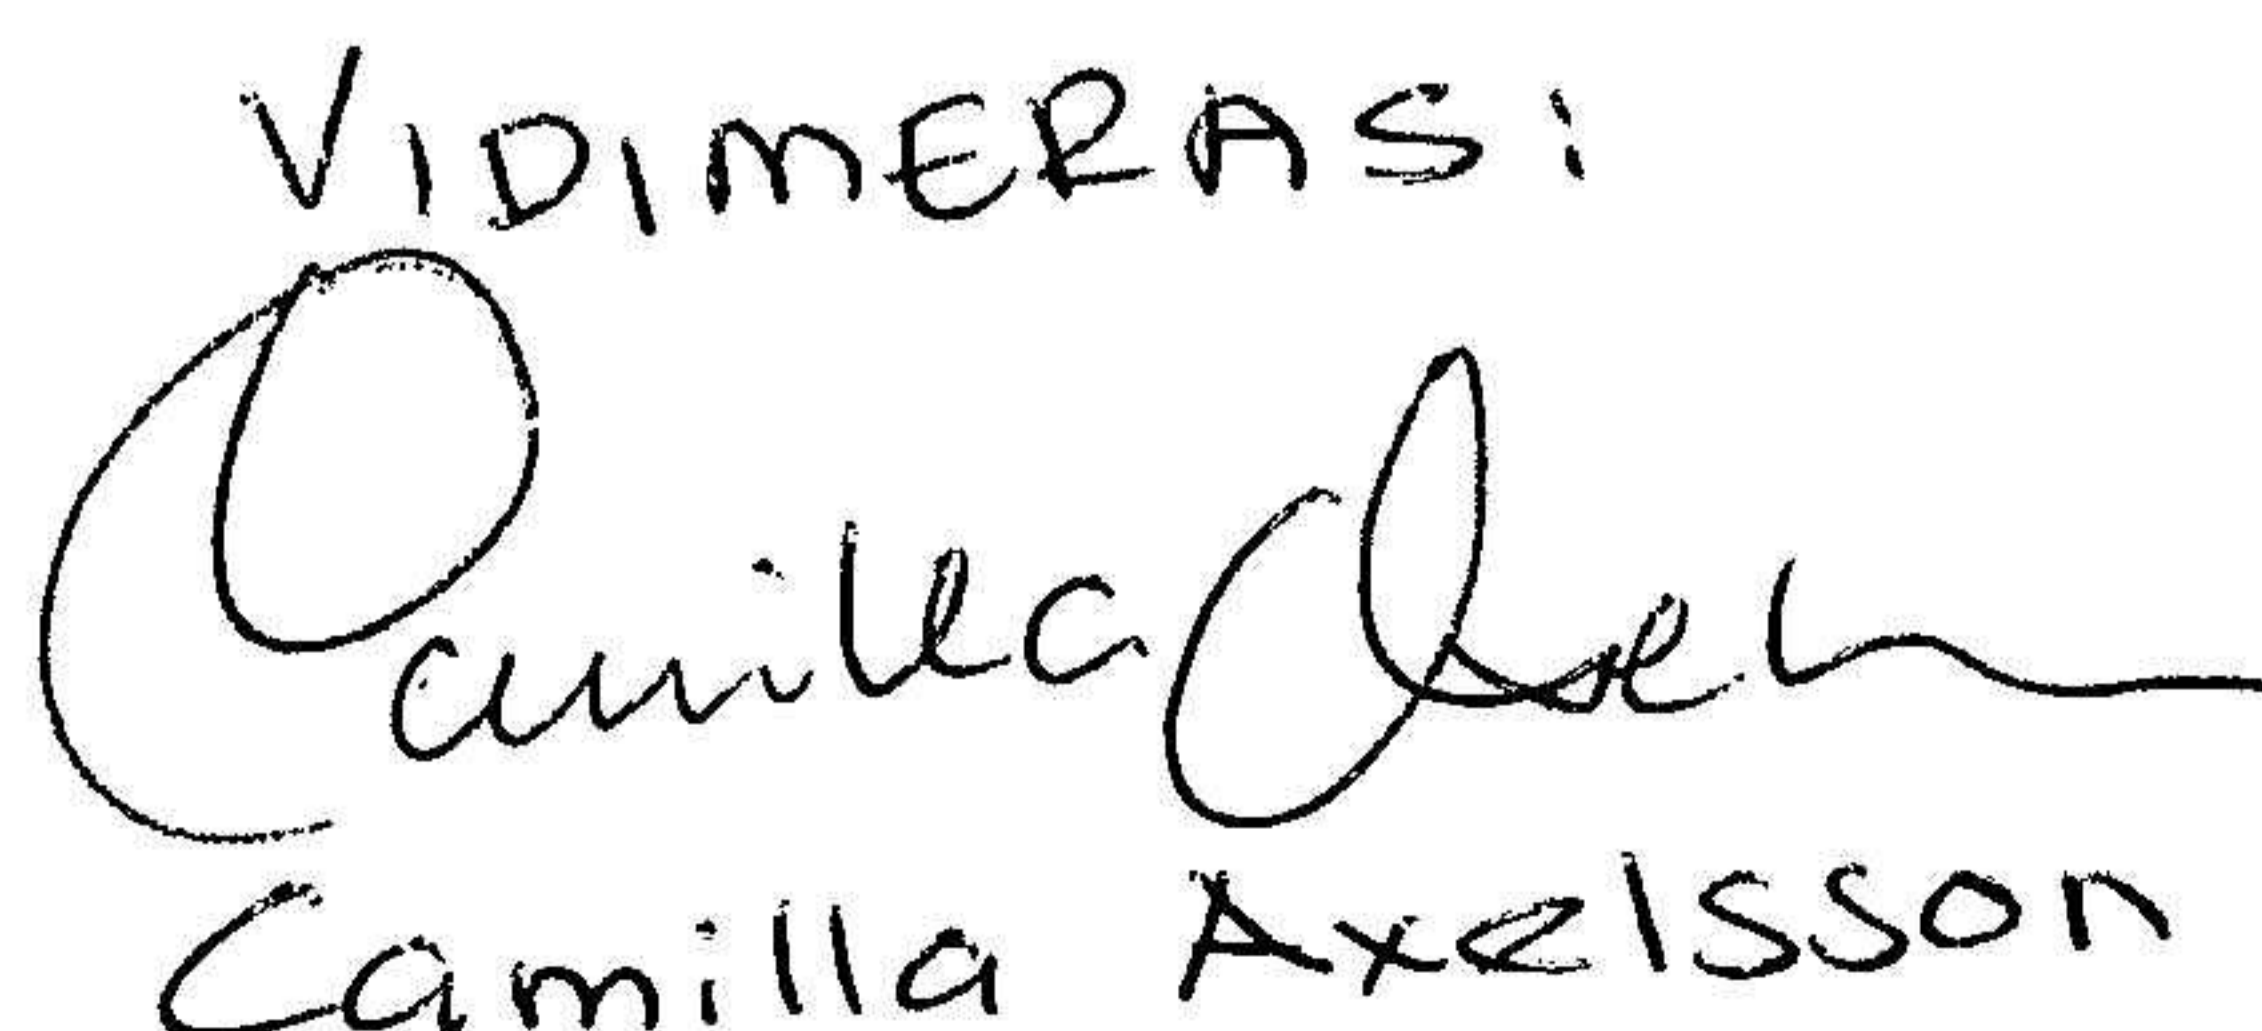 VIDIMERAS:
Camilla Axelsson
Camilla Axelsson